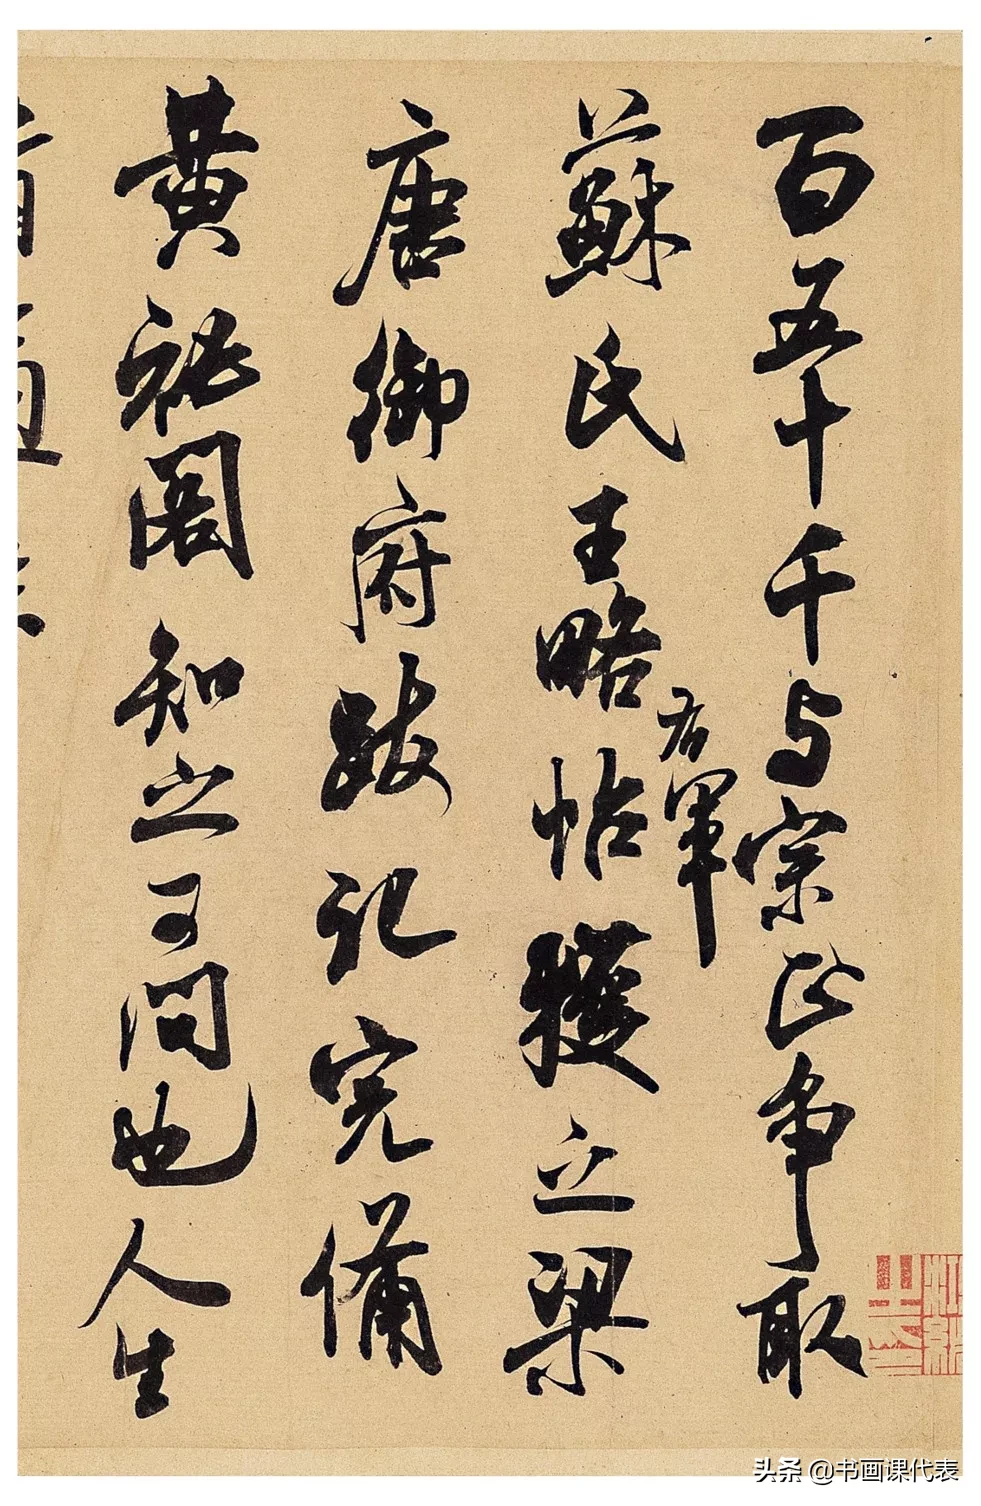 百五十千与宗正争取
右軍
蘇氏王略帖獲之梁
唐御府跋記完備
黄秘閣知之可問也人生
头条 @书画课代表